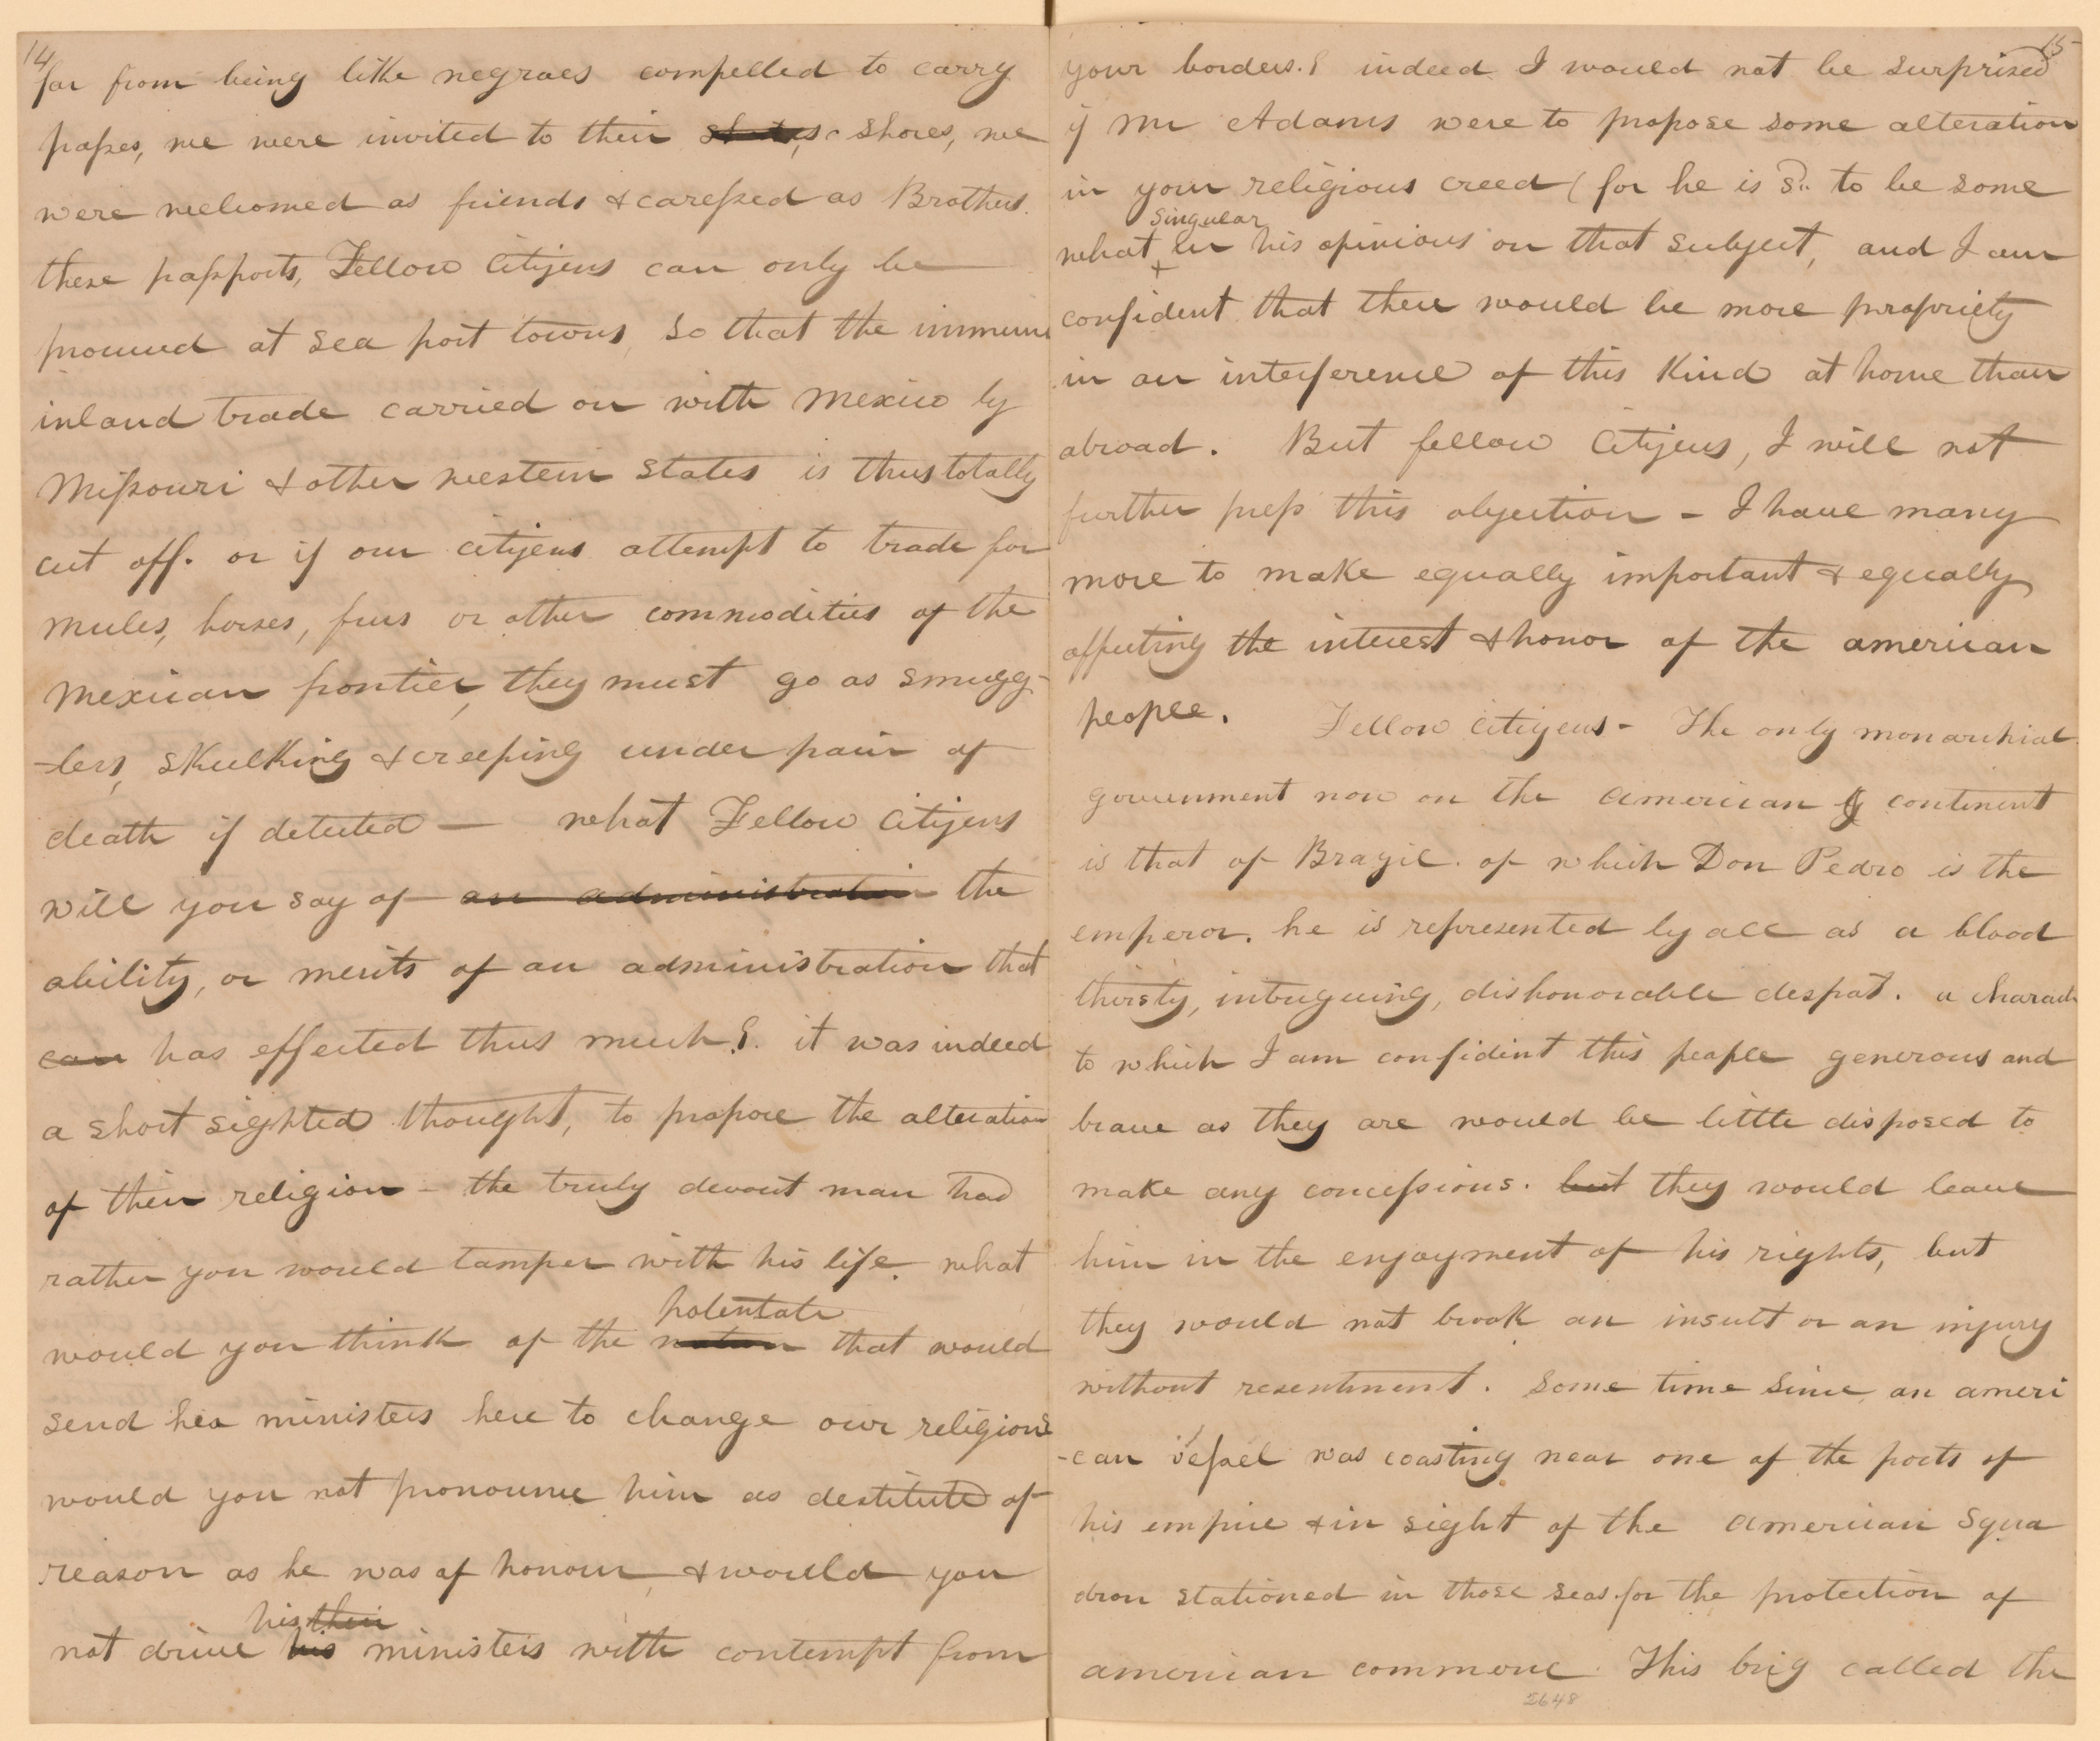 14
far from being like negroes compelled to carry
passes, we were invited to their states, shores, we
were welcomed as friends & caressed as Brothers.
these passports, Fellow Citizens can only be
procured at sea port towns, so that the immense
inland trade carried on with Mexico by
Missouri & other western states is thus totally
cut off. or if our citizens attempt to trade for
mules, horses, furs or other commodities of the
Mexican frontier, they must go as smugg-
-lers, skulking & creeping under pain of
death if detected — what Fellow Citizens
will you say of an administration the
ability, or merits of an administration that
can has effected thus much?. it was indeed
a short sighted thought, to propose the alteration
of their religion - the truly devout man had
rather you would tamper with his life. what
potentate
would you think of the nation that would
send his ministers here to change our religions
would you not pronounce him as destitute of
reason as he was of honour, & would you
his their
not drive his ministers with contempt from
15
your borders.? indeed I would not be surprised
if Mr Adams were to propose some alteration
in your religious creed (for he is sd. to be some
singular
what in his opinions on that subject, and I am
confident that there would be more propriety
in an interference of this kind at home than
abroad. But fellow Citizens, I will not
further press this objection - I have many
more to make equally important & equally
affecting the interest & honor of the american
people. Fellow Citizens - The only monarchial
government now on the american continent
is that of Brazil. of which Don Pedro is the
emperor. he is represented by all as a blood
thirsty, intriguing, dishonorable despot. a charact
to which I am confident this people generous and
brave as they are would be little disposed to
make any concessions. but they would leave
him in the enjoyment of his rights, but
they would not brook an insult or an injury
without resentment. Some time since an ameri
-can vessel was coasting near one of the ports of
his empire & in sight of the american squa
dron stationed in those seas for the protection of
american commerce. This brig called the
2648